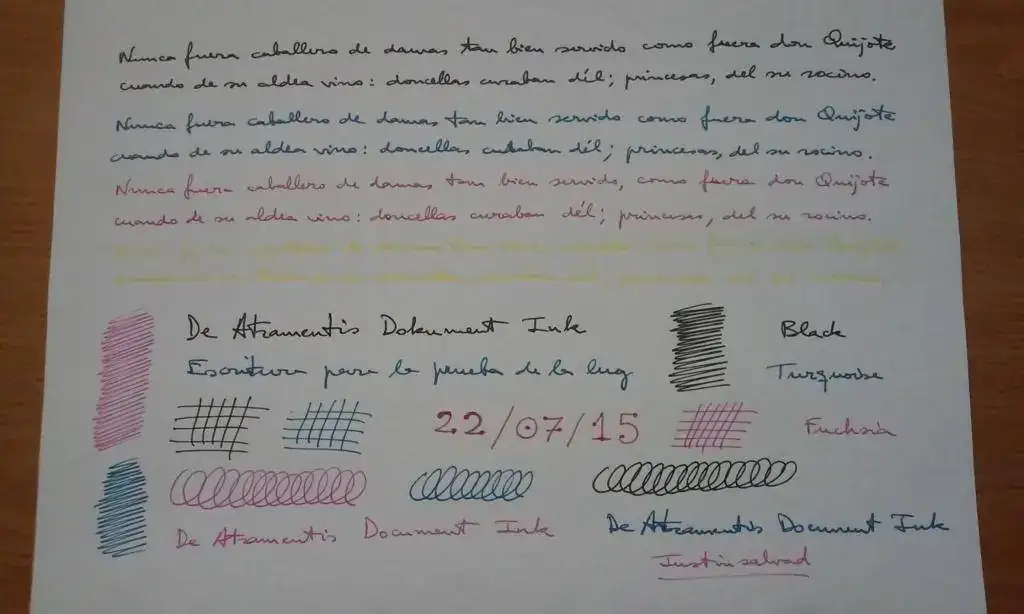 Nunca fuera caballero de damas tan bien servido como fuera don Quijote
cuando de su aldea vino: doncellas curaban dél; princesas, del su rocino.
Nunca fuera caballero de damas tan bien servido como fuera don Quijote
cuando de su aldea vino: doncellas curaban dél; princesas, del su rocino.
Nunca fuera caballero de damas tan bien servido, como fuera don Quijote
cuando de su aldea vino: doncellas curaban dél; princesas, del su rocino.
De Atramentis Dokument Ink
Black
Escritura para la prueba de la luz
Turquoise
22/07/15
Fuchsia
De Atramentis Document Ink
De Atramentis Document Ink
Justinsalvad